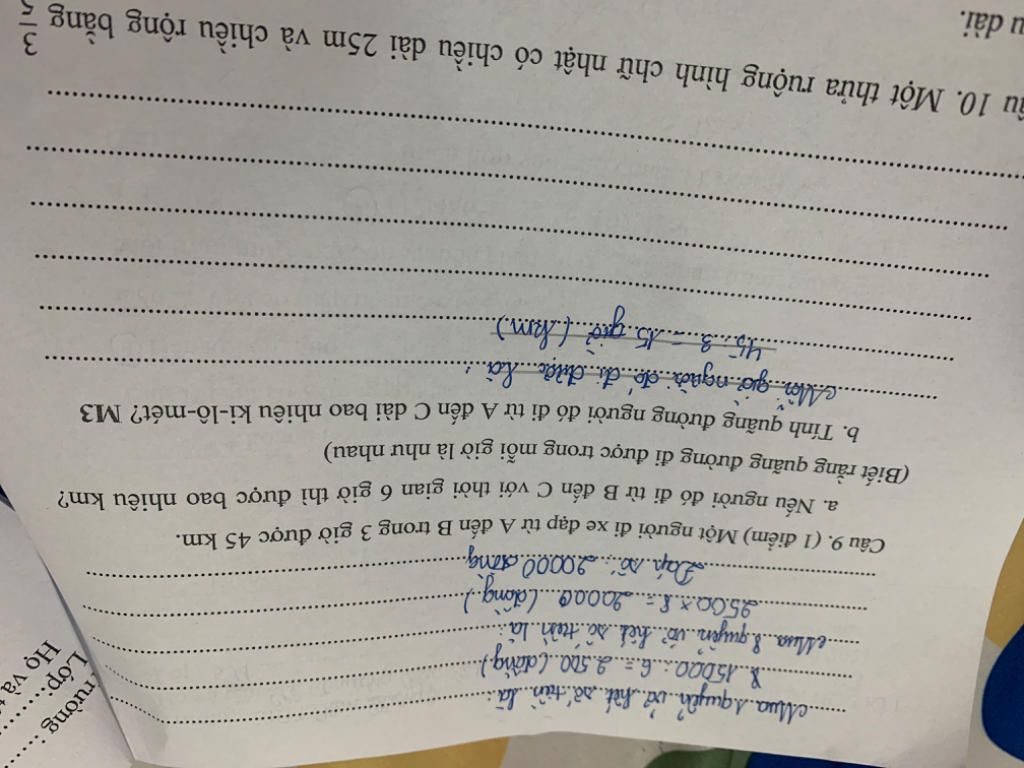 Trường:
Lớp:
Họ và
Mua 1 quyển vở hết số tiền là:
15000 : 6 = 2500 (đồng)
Mua 8 quyển vở hết số tiền là:
2500 x 8 = 20000 (đồng)
Đáp số: 20000 đồng
Câu 9. (1 điểm) Một người đi xe đạp từ A đến B trong 3 giờ được 45 km.
a. Nếu người đó đi từ B đến C với thời gian 6 giờ thì được bao nhiêu km?
(Biết rằng quãng đường đi được trong mỗi giờ là như nhau)
b. Tính quãng đường người đó đi từ A đến C dài bao nhiêu ki-lô-mét? M3
Mỗi giờ người đó đi được là:
45 : 3 = 15 giờ (km)
10. Một thửa ruộng hình chữ nhật có chiều dài 25m và chiều rộng bằng 3/5
dài.